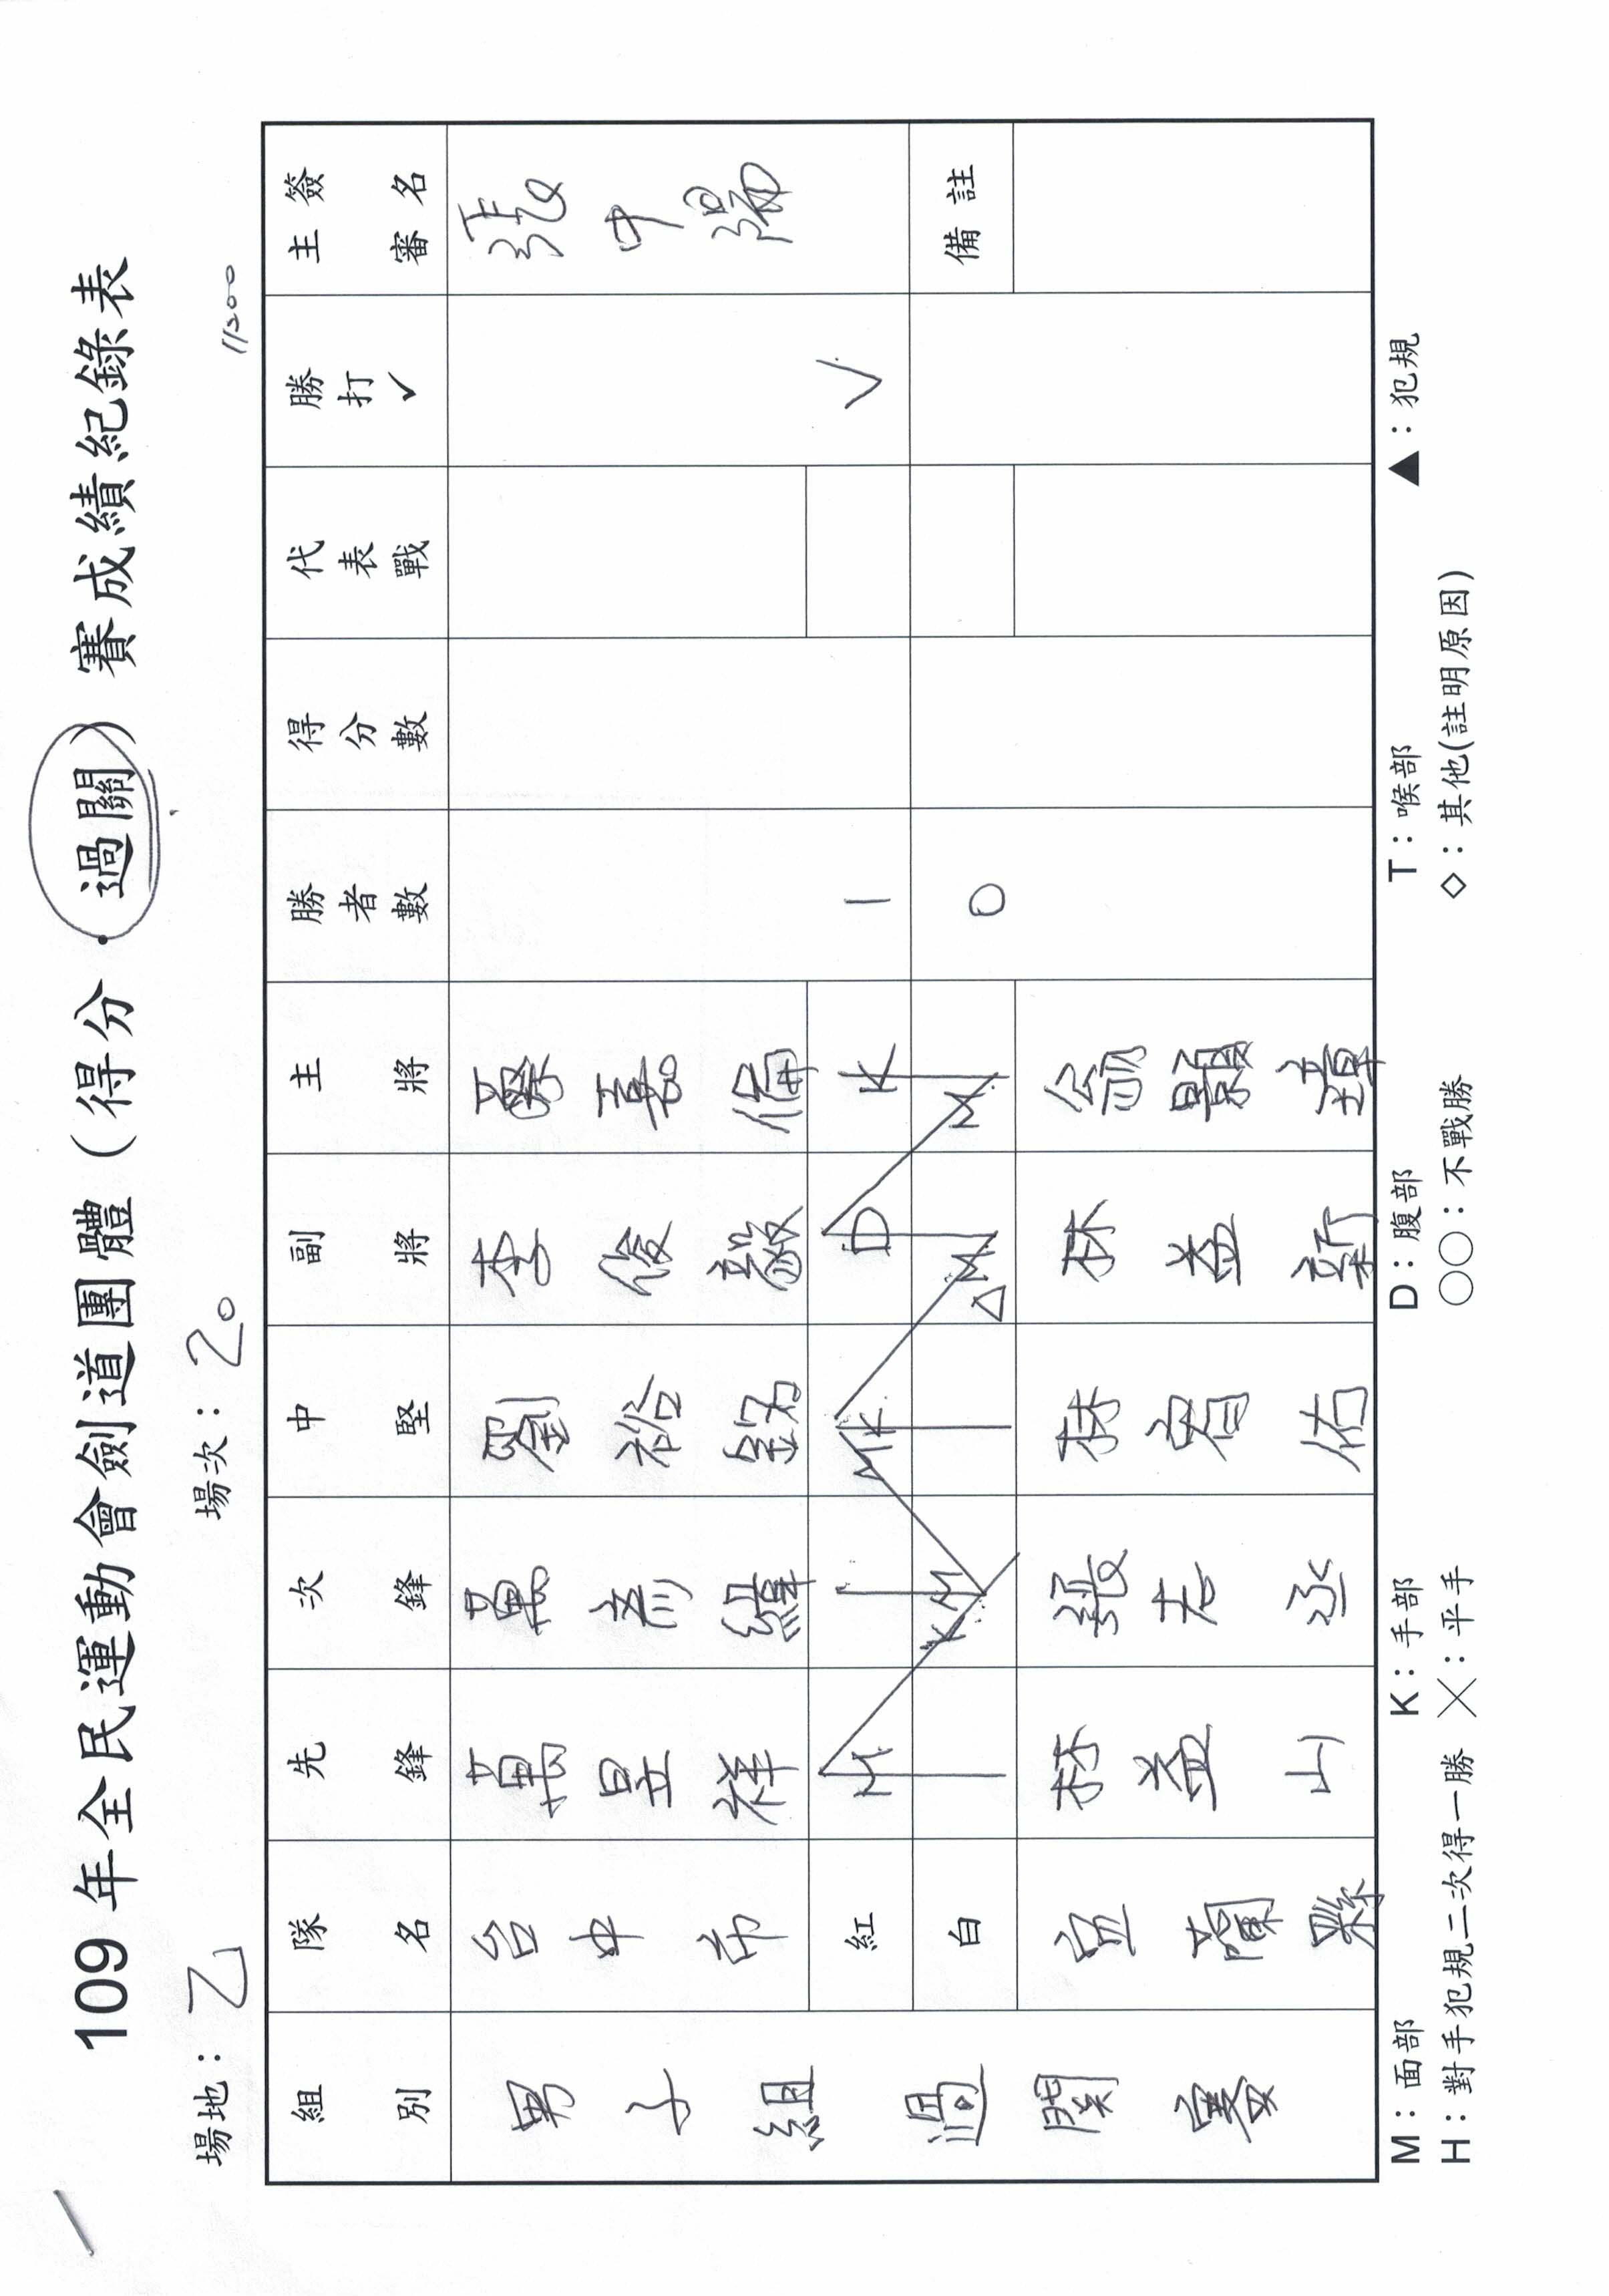 109 年全民運動會劍道團體（得分．過關）賽成績紀錄表
場地：乙 場次：20 11200
組別 隊名 先鋒 次鋒 中堅 副將 主將 勝者數 得分數 代表戰 勝打✓ 主審簽名
男子組過關賽
台中市 萬昱祥 劉裕銘 李俊毅 蔡嘉倫 張中
紅 M MK D K 1 ✓
白 KM M△ M 0 備註
宜蘭縣 林益山 張志丞 林睿佑 林益新
M：面部 K：手部 D：腹部 T：喉部 ▲：犯規
H：對手犯規二次得一勝 ╳：平手 ○○：不戰勝 ◇：其他(註明原因)